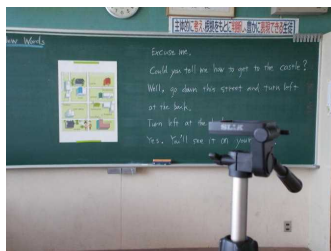 主体的に考え、根拠をもとに判断し、豊かに表現できる生徒
New Words
Excuse me.
Could you tell me how to get to the castle?
Well, go down this street and turn left
at the bank.
Turn left at the
Yes. You'll see it on your